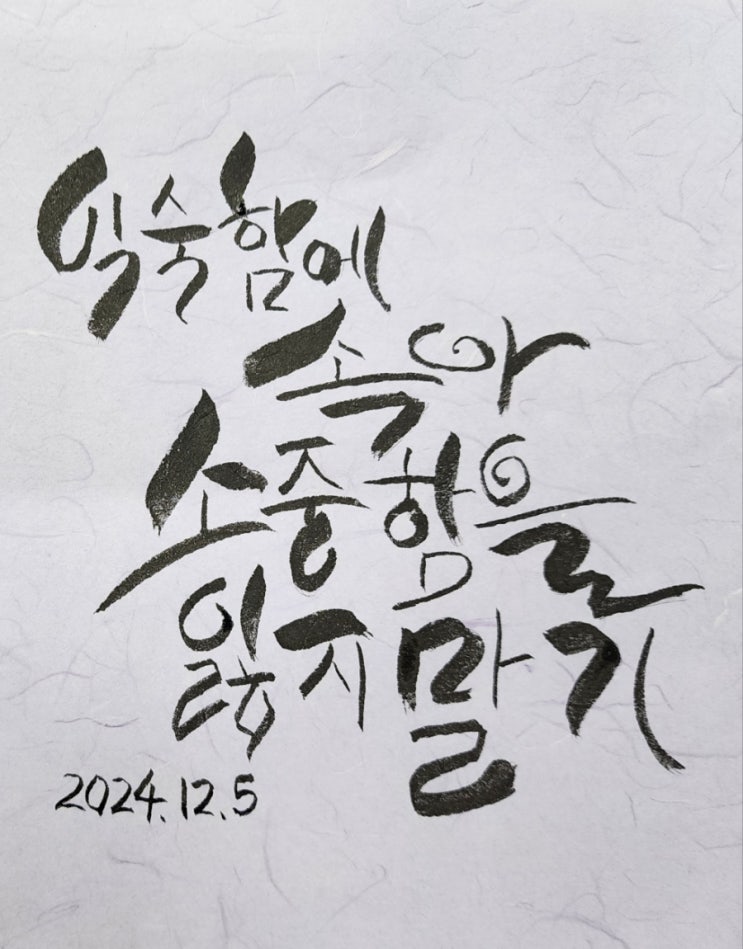 익숙함에
속아
소중함을
잃지 말기
2024.12.5